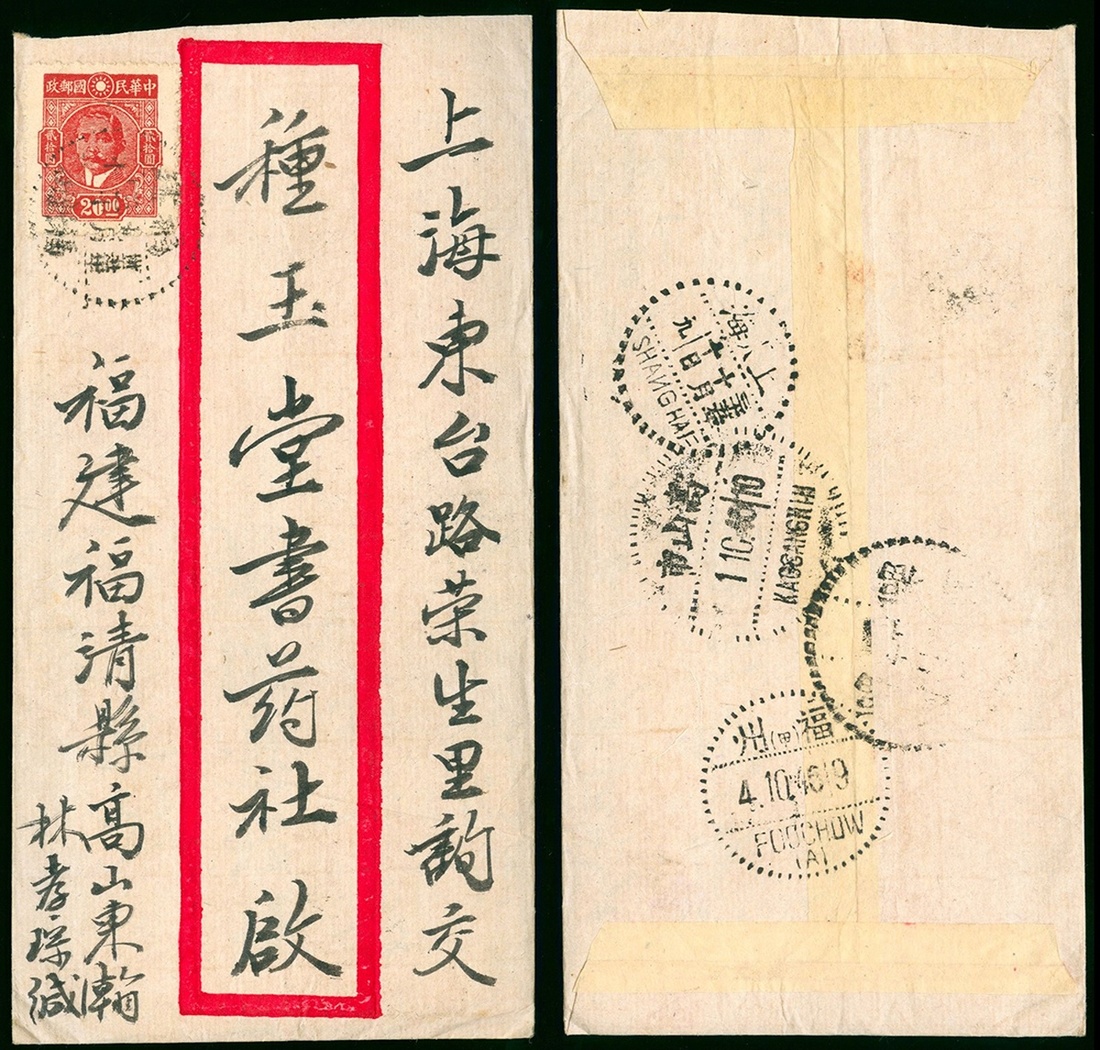 上海東台路荣生里詢交
種玉堂書药社啟
福建福清縣高山東瀚
林孝琛緘
政郵國民華中
貳拾圓
貳拾圓
2000
上海
SHANGHAI
高山市
1.10.46/10
KAOSANGSHIH
福(甲)州
4.10.46/9
FOOCHOW
(A)